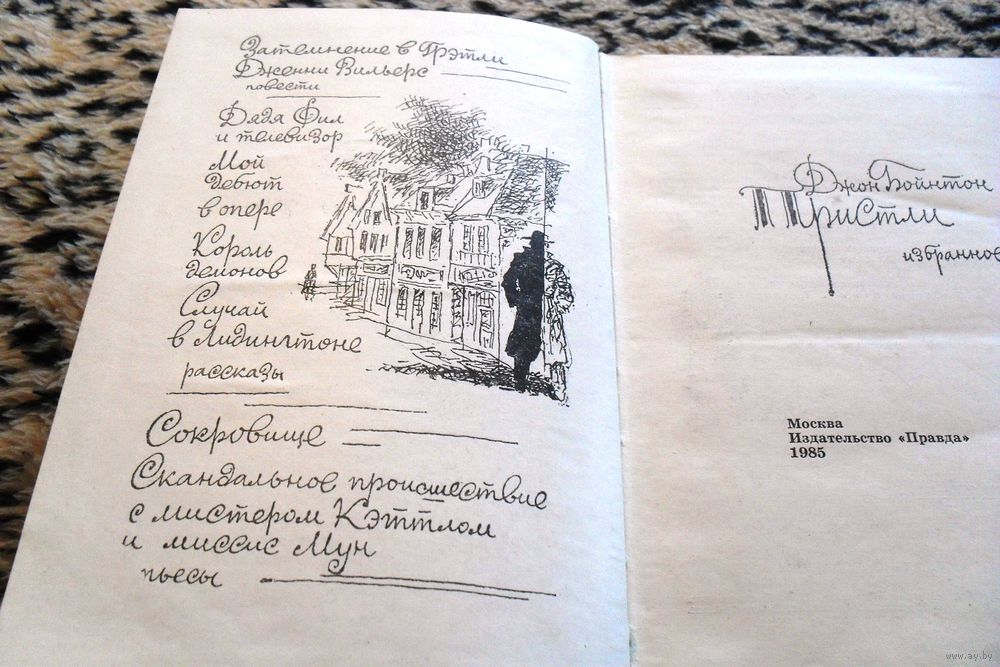 Затемнение в Грэтли
Дженни Вильерс
повести
Дядя Фил
и телевизор
Мой
дебют
в опере
Король
демонов
Случай
в Лидингтоне
рассказы
Сокровище
Скандальное происшествие
с мистером Кэттлом
и миссис Мун
пьесы
Джон Бойнтон
Пристли
избранное
Москва
Издательство «Правда»
1985
www.ay.by